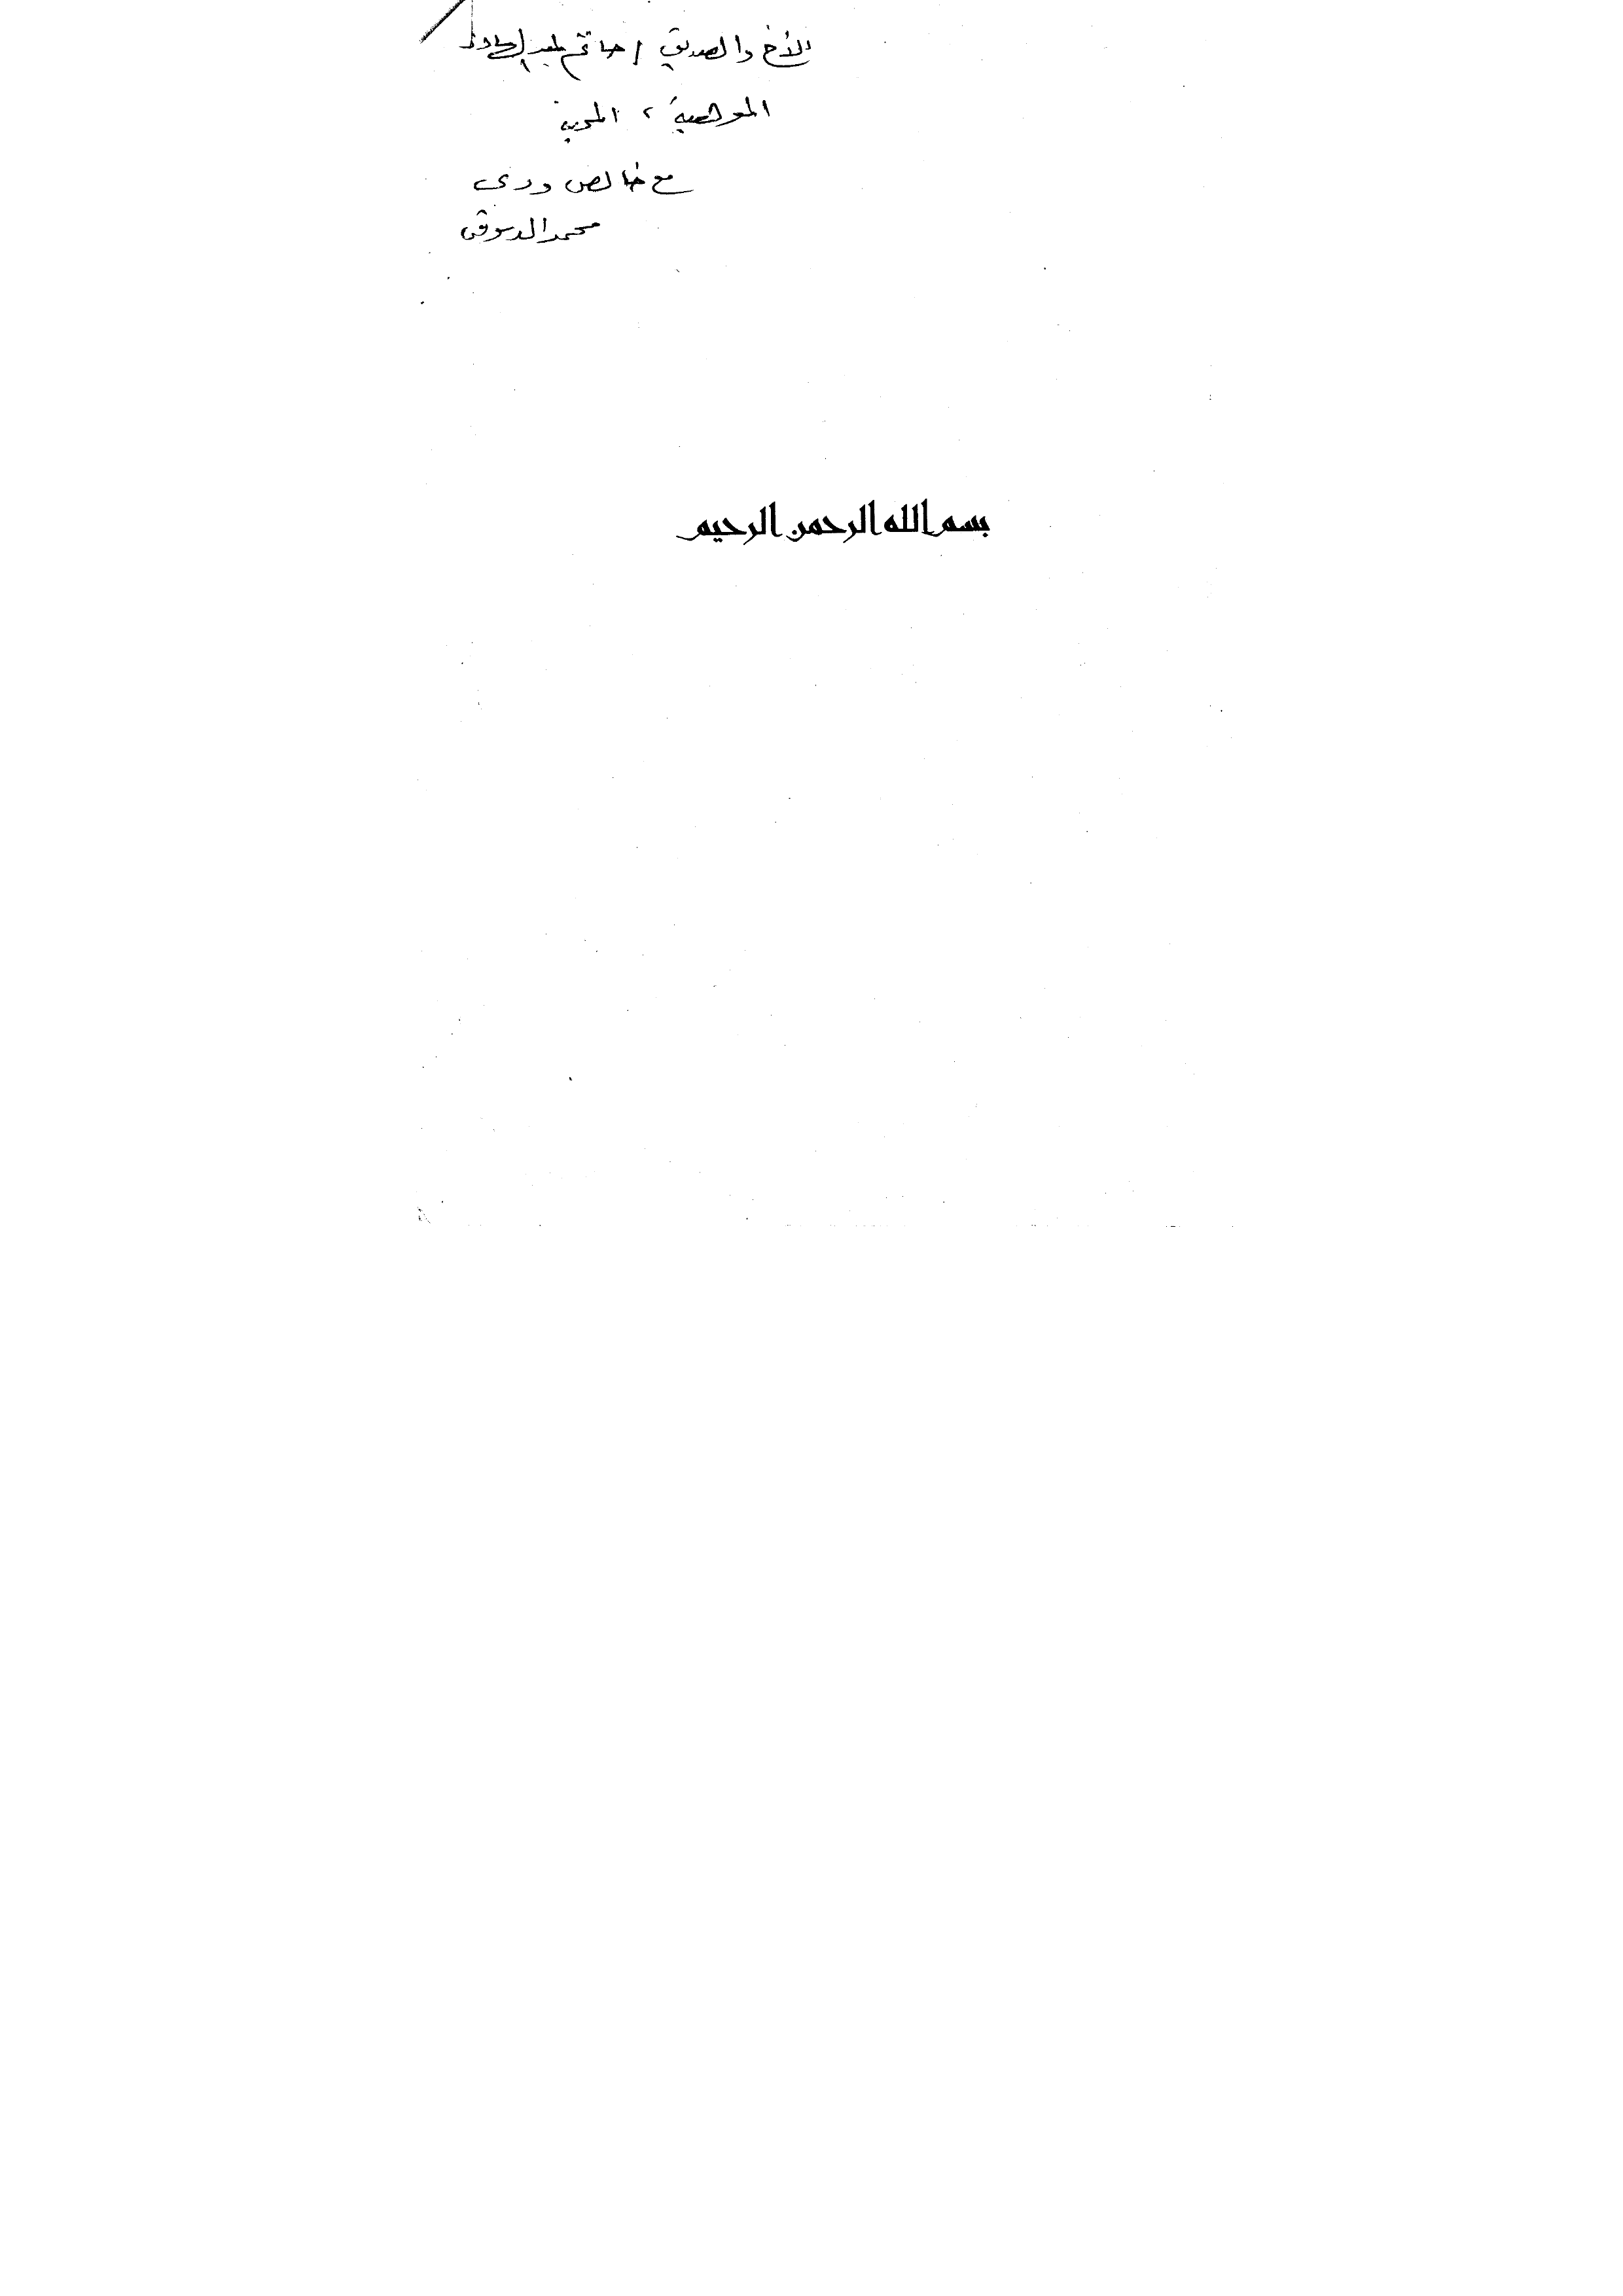 الأخ والصديق / حاتم عبد الحافظ
الموهبة ، المحبة
مع خالص ودى
محمد الدسوقى
بسم الله الرحمن الرحيم